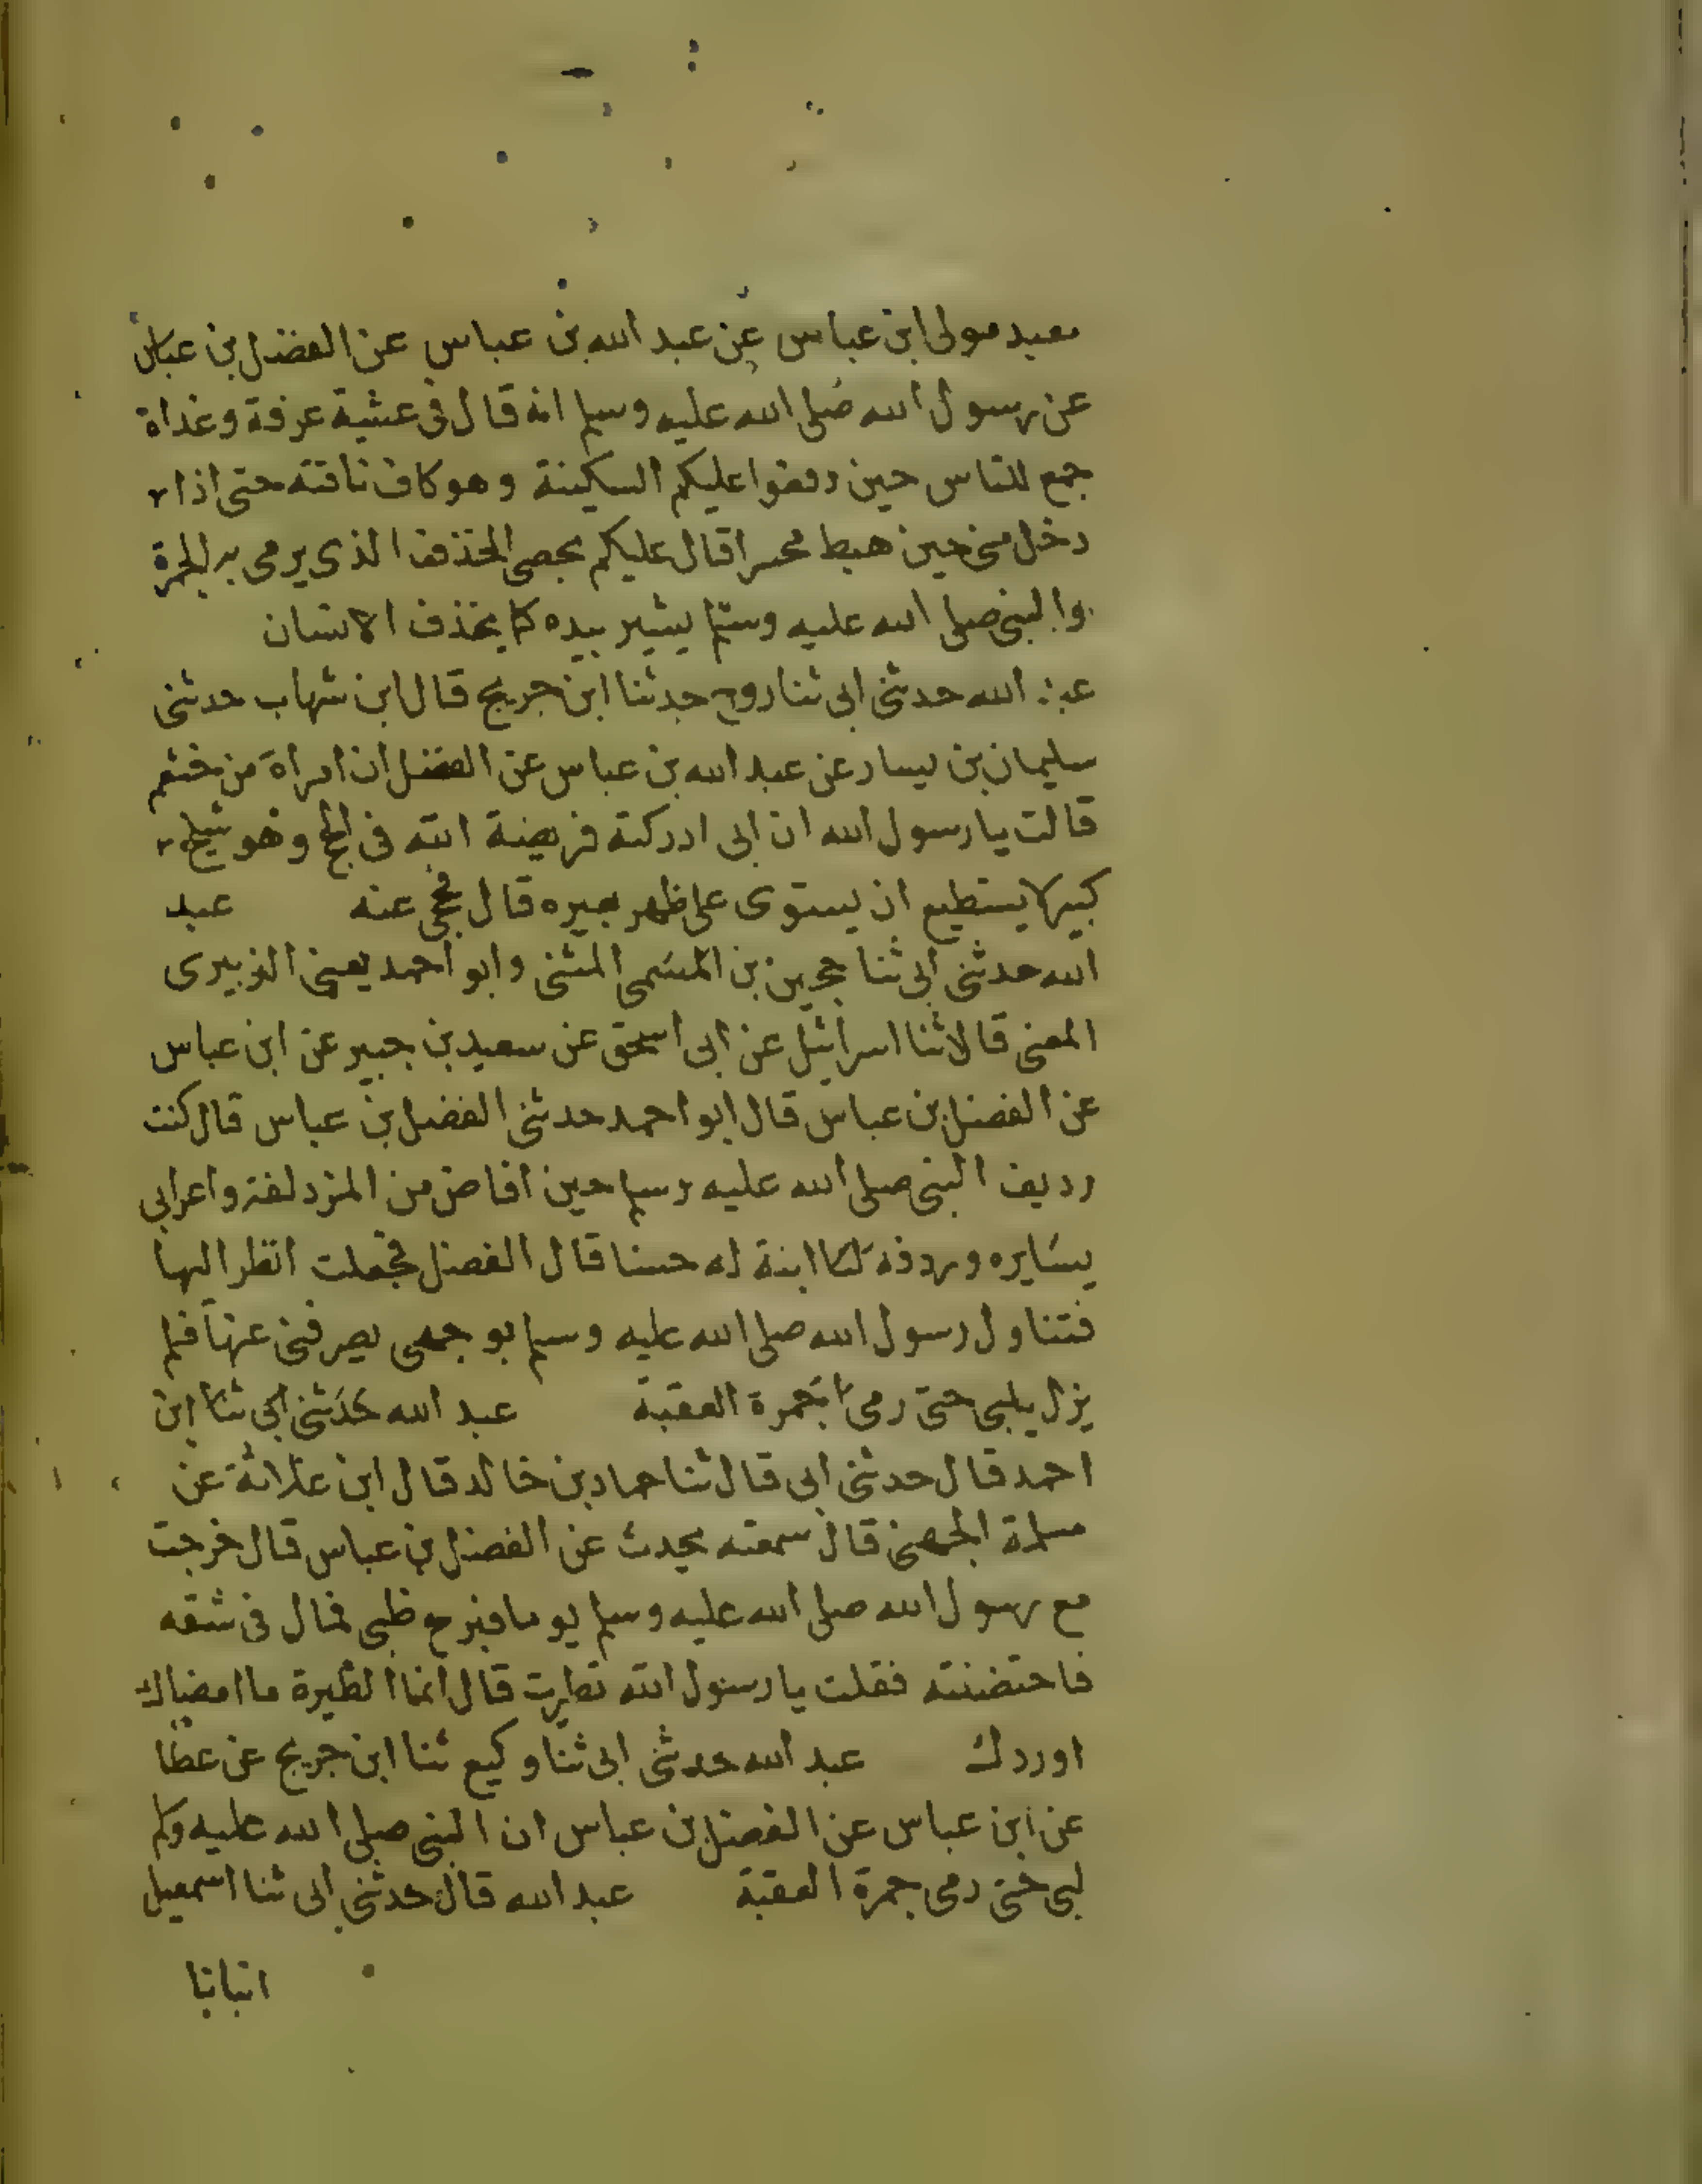 معبد مولى ابن عباس عن عبد الله بن عباس عن الفضل بن عباس
عن رسول الله صلى الله عليه وسلم انه قال فى عشية عرفة وغداة
جمع للناس حين دفعوا عليكم السكينة وهو كاف ناقته حتى اذا
دخل منى حين هبط محسرا قال عليكم بحصى الخذف الذى يرمى به الجمرة
والنبى صلى الله عليه وسلم يشير بيده كما يخذف الانسان
عبد الله حدثنى ابى ثنا روح حدثنا ابن جريج قال ابن شهاب حدثنى
سليمان بن يسار عن عبد الله بن عباس عن الفضل ان امراة من خثعم
قالت يا رسول الله ان ابى ادركته فريضة الله فى الحج وهو شيخ
كبير لا يستطيع ان يستوى على ظهر بعيره قال فحجى عنه عبد
الله حدثنى ابى ثنا حجين بن المثنى وابو احمد يعنى الزبيرى
المعنى قالا ثنا اسرائيل عن ابى اسحق عن سعيد بن جبير عن ابن عباس
عن الفضل بن عباس قال ابو احمد حدثنى الفضل بن عباس قال كنت
رديف النبى صلى الله عليه وسلم حين افاض من المزدلفة واعرابى
يسايره وردفه ابنة له حسنا قال الفضل فجعلت انظر اليها
فتناول رسول الله صلى الله عليه وسلم بوجهى يصرفنى عنها فلم
يزل يلبى حتى رمى جمرة العقبة عبد الله حدثنى ابى ثنا ابن
احمد قال حدثنى ابى قال ثنا حماد بن خالد قال ابن علاثة عن
مسلمة الجهنى قال سمعته يحدث عن الفضل بن عباس قال خرجت
مع رسول الله صلى الله عليه وسلم يوما فبرح ظبى فمال فى شقه
فاحتضنته فقلت يا رسول الله تطيرت قال انما الطيرة ما امضاك
اوردك عبد الله حدثنى ابى ثنا وكيع ثنا ابن جريج عن عطا
عن ابن عباس عن الفضل بن عباس ان النبى صلى الله عليه وسلم
لبى حتى رمى جمرة العقبة عبد الله قال حدثنى ابى ثنا اسمعيل
انبانا